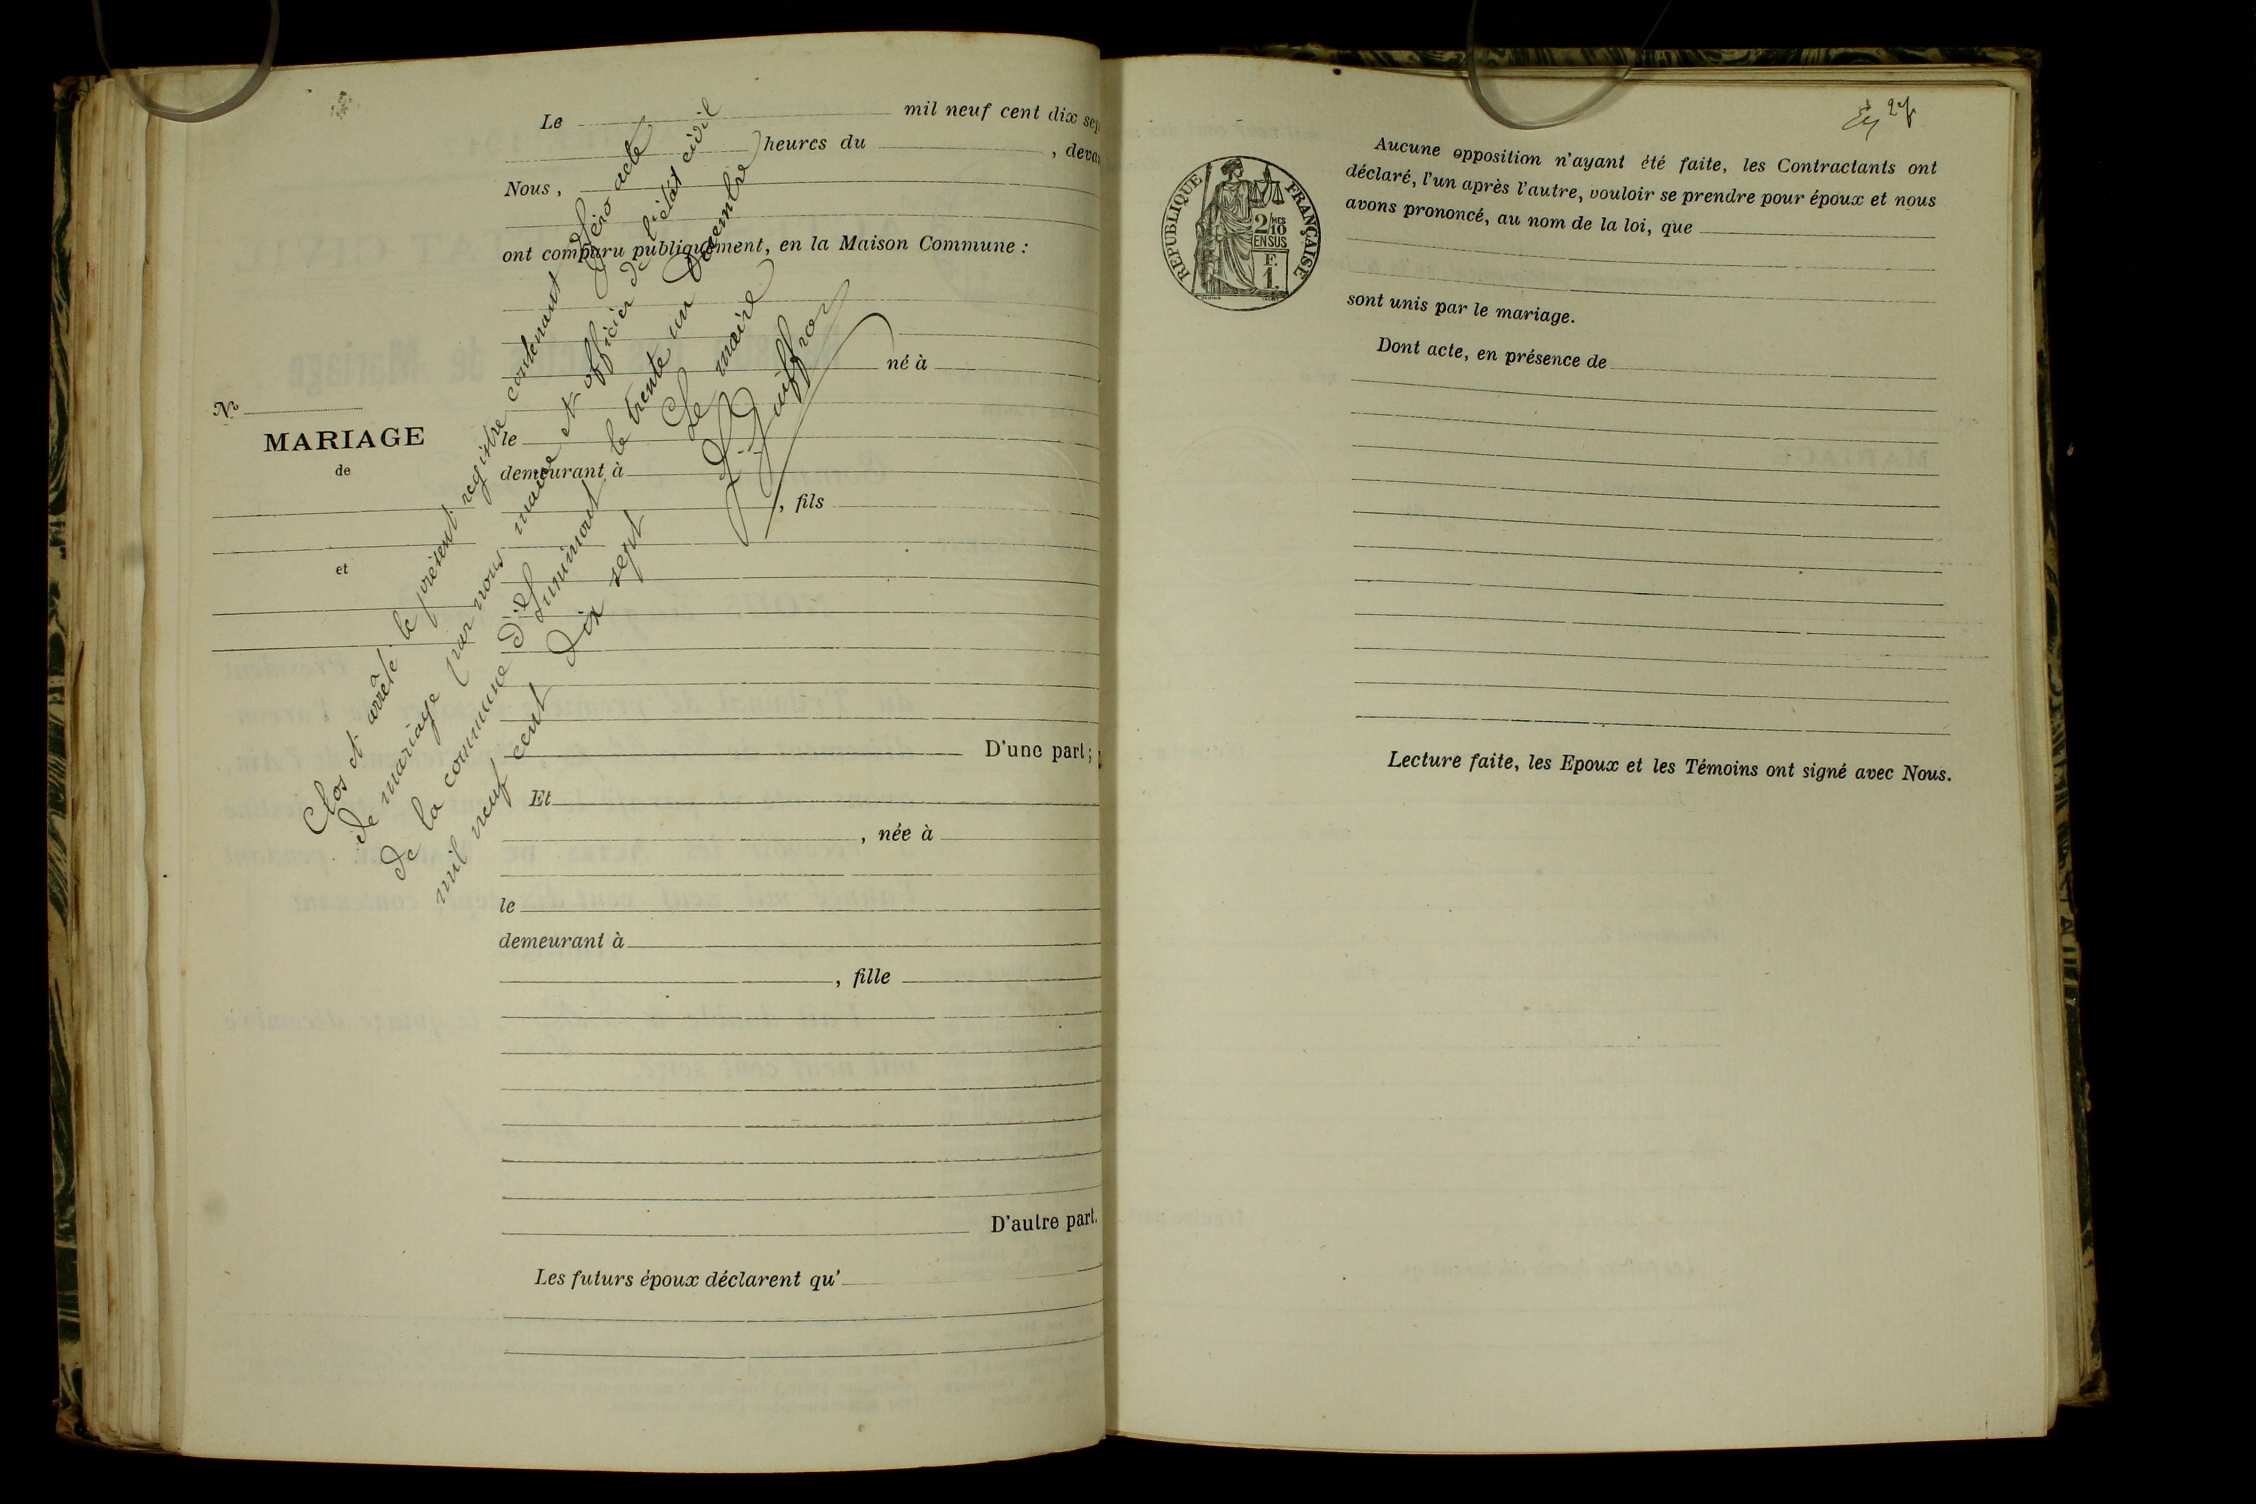 Le mil neuf cent dix sep
heures du , deva
Nous,
ont comparu publiquement, en la Maison Commune :
né à
le
demeurant à
, fils
D'une part ;
Et
, née à
le
demeurant à
, fille
D'autre part.
Les futurs époux déclarent qu'
No
MARIAGE
de
et
Clos et arrêté le présent registre contenant zéro acte
de mariage par nous maire et officier de l'état civil
de la commune d'Izernore le trente un Décembre
mil neuf cent dix sept
Le maire
Aucune opposition n'ayant été faite, les Contractants ont
déclaré, l'un après l'autre, vouloir se prendre pour époux et nous
avons prononcé, au nom de la loi, que
sont unis par le mariage.
Dont acte, en présence de
Lecture faite, les Epoux et les Témoins ont signé avec Nous.
REPUBLIQUE FRANÇAISE
2/10
EN SUS
F.
1.